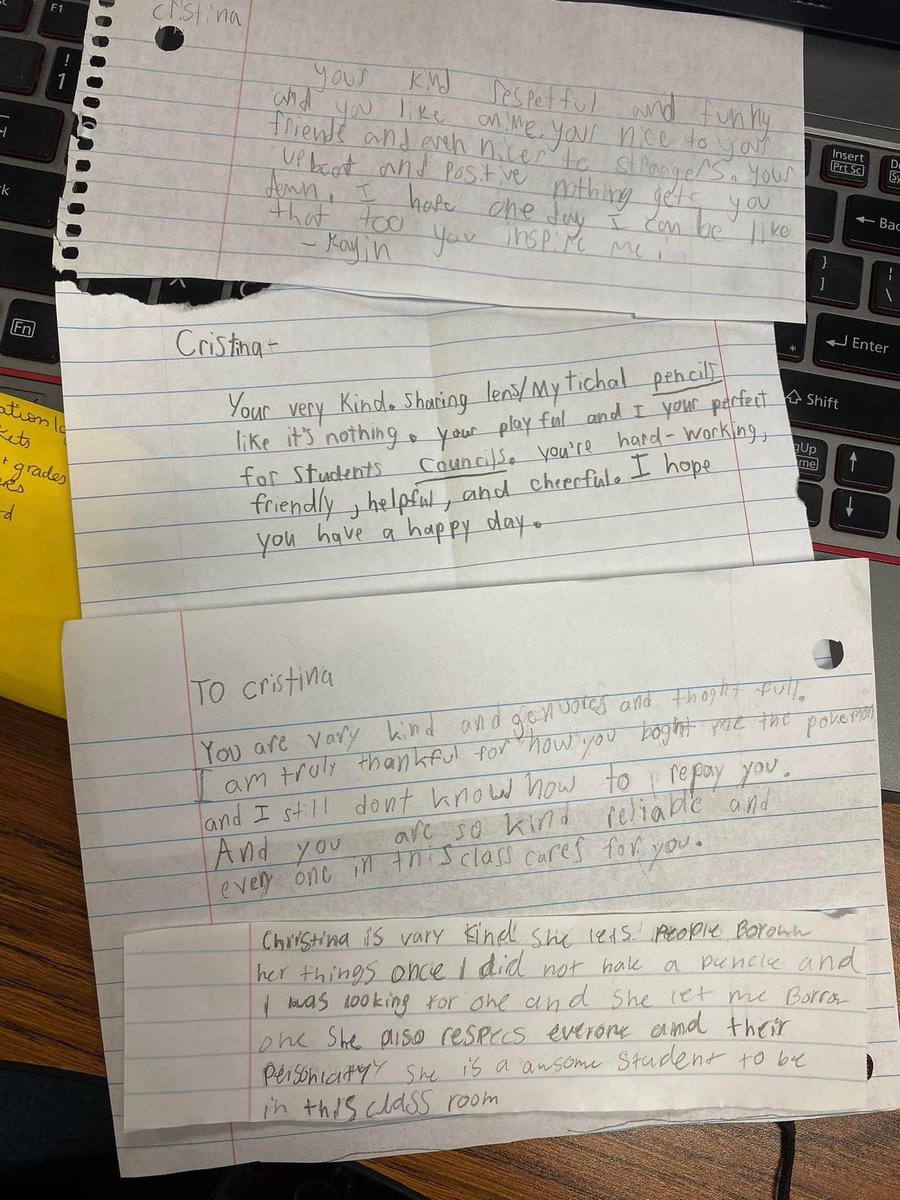 cristina
your kind respetful and funny
and you like anime. your nice to your
friends and even nicer to strangers. your
upbeat and positive nothing gets you
down. I hope one day I can be like
that too you inspire me!
- Kayin
Cristina-
Your very kind. Sharing lens/Mytichal pencils
like it's nothing. your playful and I your perfect
for students councils. you're hard-working,
friendly, helpful, and cheerful. I hope
you have a happy day.
TO cristina
You are vary kind and genuores and thoght full.
I am truly thankful for how you boght me the pokemon
and I still dont know how to repay you.
And you are so kind reliable and
every one in this class cares for you.
Christina is vary kind she lets People Borown
her things once I did not hake a puncle and
I was looking for one and she let me Borrow
one she also respecs everone and their
Personicaty she is a awsome student to be
in this class room
ation lo
kets
+ grades
F1
!
1
Fn
Insert
Prt Sc
← Bac
}
]
¦
\
*
Enter
Shift
↑
↓